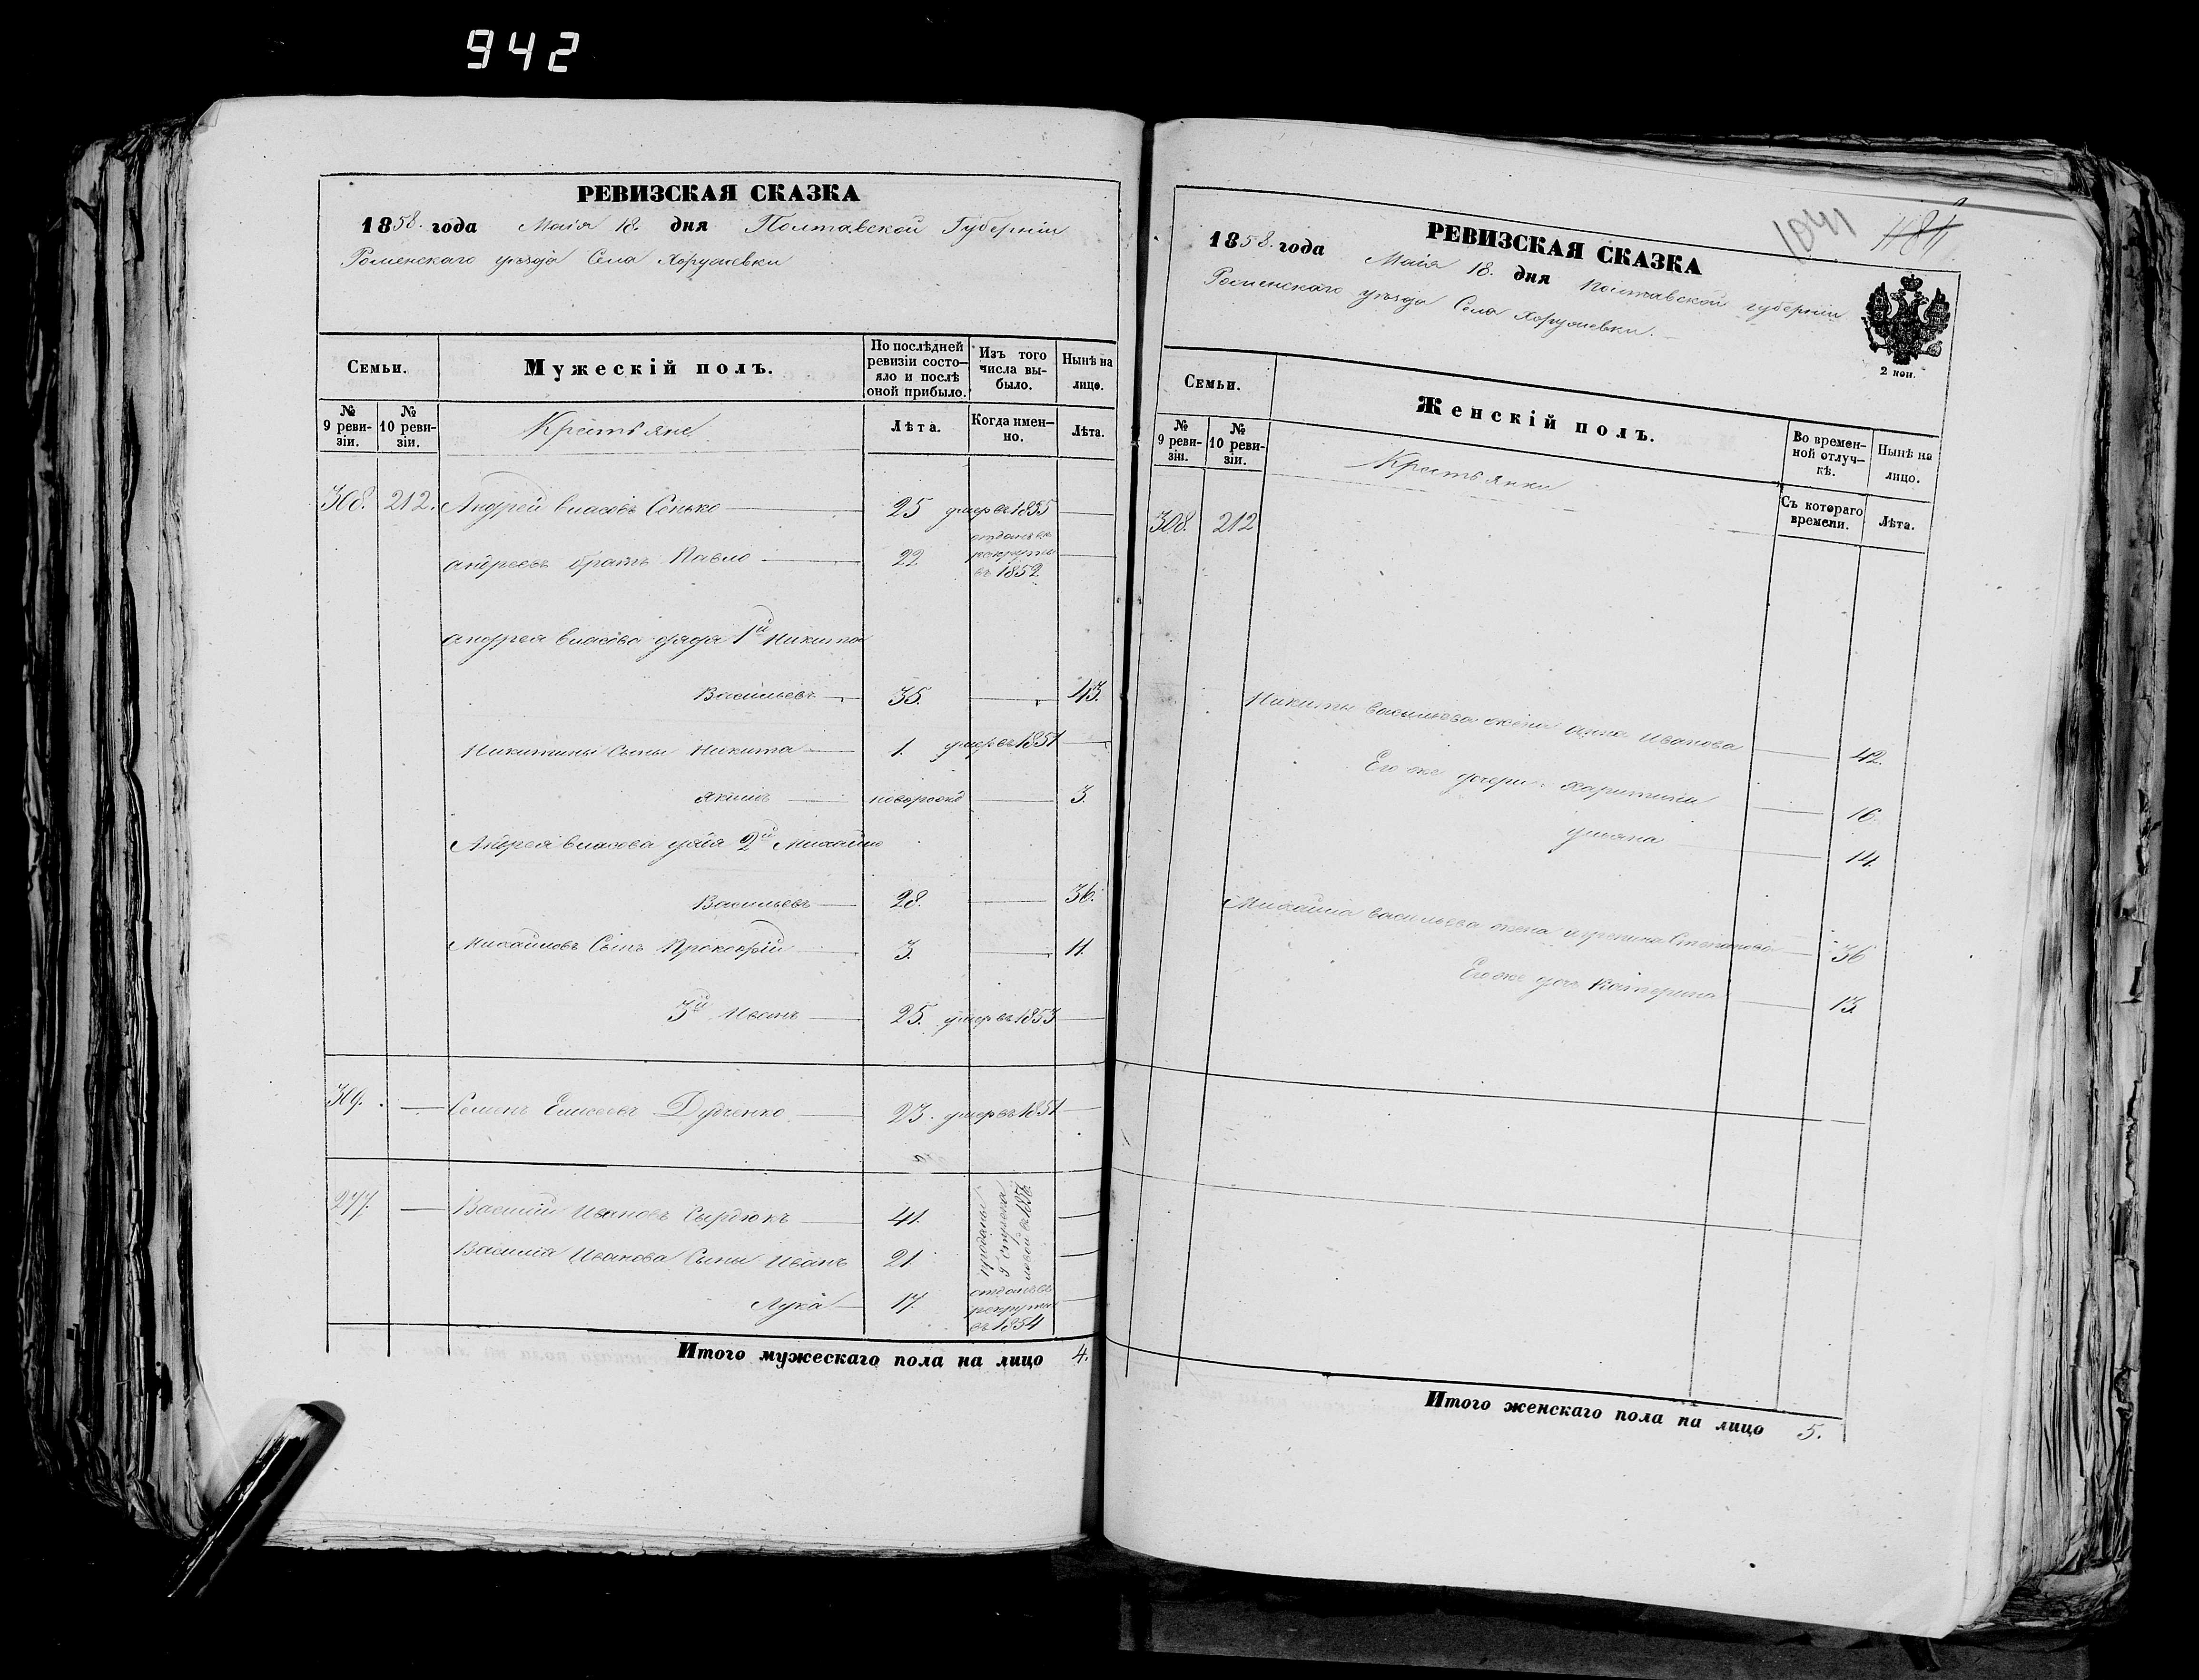 942
РЕВИЗСКАЯ СКАЗКА
1858. года Маія 18. дня Полтавской Губерніи
Роменскаго уѣзда Села Хоружевки
Семьи.
Мужескій полъ.
По послѣдней ревизіи состо-яло и послѣ оной прибыло.
Изъ того числа вы-было.
Нынѣ на лицо.
№ 9 реви-зіи.
№ 10 реви-зіи.
Крестьяне
Лѣта.
Когда имен-но.
Лѣта.
308. 212. Андрей власовъ Сенько 25 умеръ 1855
андреевъ братъ Павло 22 отданъ въ рекруты въ 1852
андрея власова дядя 1й Никита
Васильевъ 35. 43.
Никитины Сыны Никита 1. умеръ въ 1851
Якимъ новорожд 3.
Андрея власова дядя 2й Михайло
Васильевъ 28. 36.
Михайловъ Сынъ Прокофій 3. 11.
3й Иванъ 25. умеръ въ 1853
309. Семенъ Елисеевъ Дудченко 23. умеръ въ 1851
277. Василій Ивановъ Сырдюкъ 41. проданы
Василія Иванова Сыны Иванъ 21.
Лука 17. отданъ въ рекруты въ 1854
Итого мужескаго пола на лицо 4.
1041
РЕВИЗСКАЯ СКАЗКА
1858. года Маія 18. дня Полтавской губерніи
Роменскаго уѣзда Села Хоружевки.
2 коп.
Семьи.
Женскій полъ.
Во времен-ной отлуч-кѣ.
Нынѣ на лицо.
№ 9 реви-зіи.
№ 10 реви-зіи.
Крестьянки
Съ котораго времени.
Лѣта.
308. 212
Никиты васильева жена анна Иванова 42.
Его же дочери харитина 16.
уліяна 14.
Михайла васильева жена Степанова 36
Его же дочь Катерина 13.
Итого женскаго пола на лицо 5.